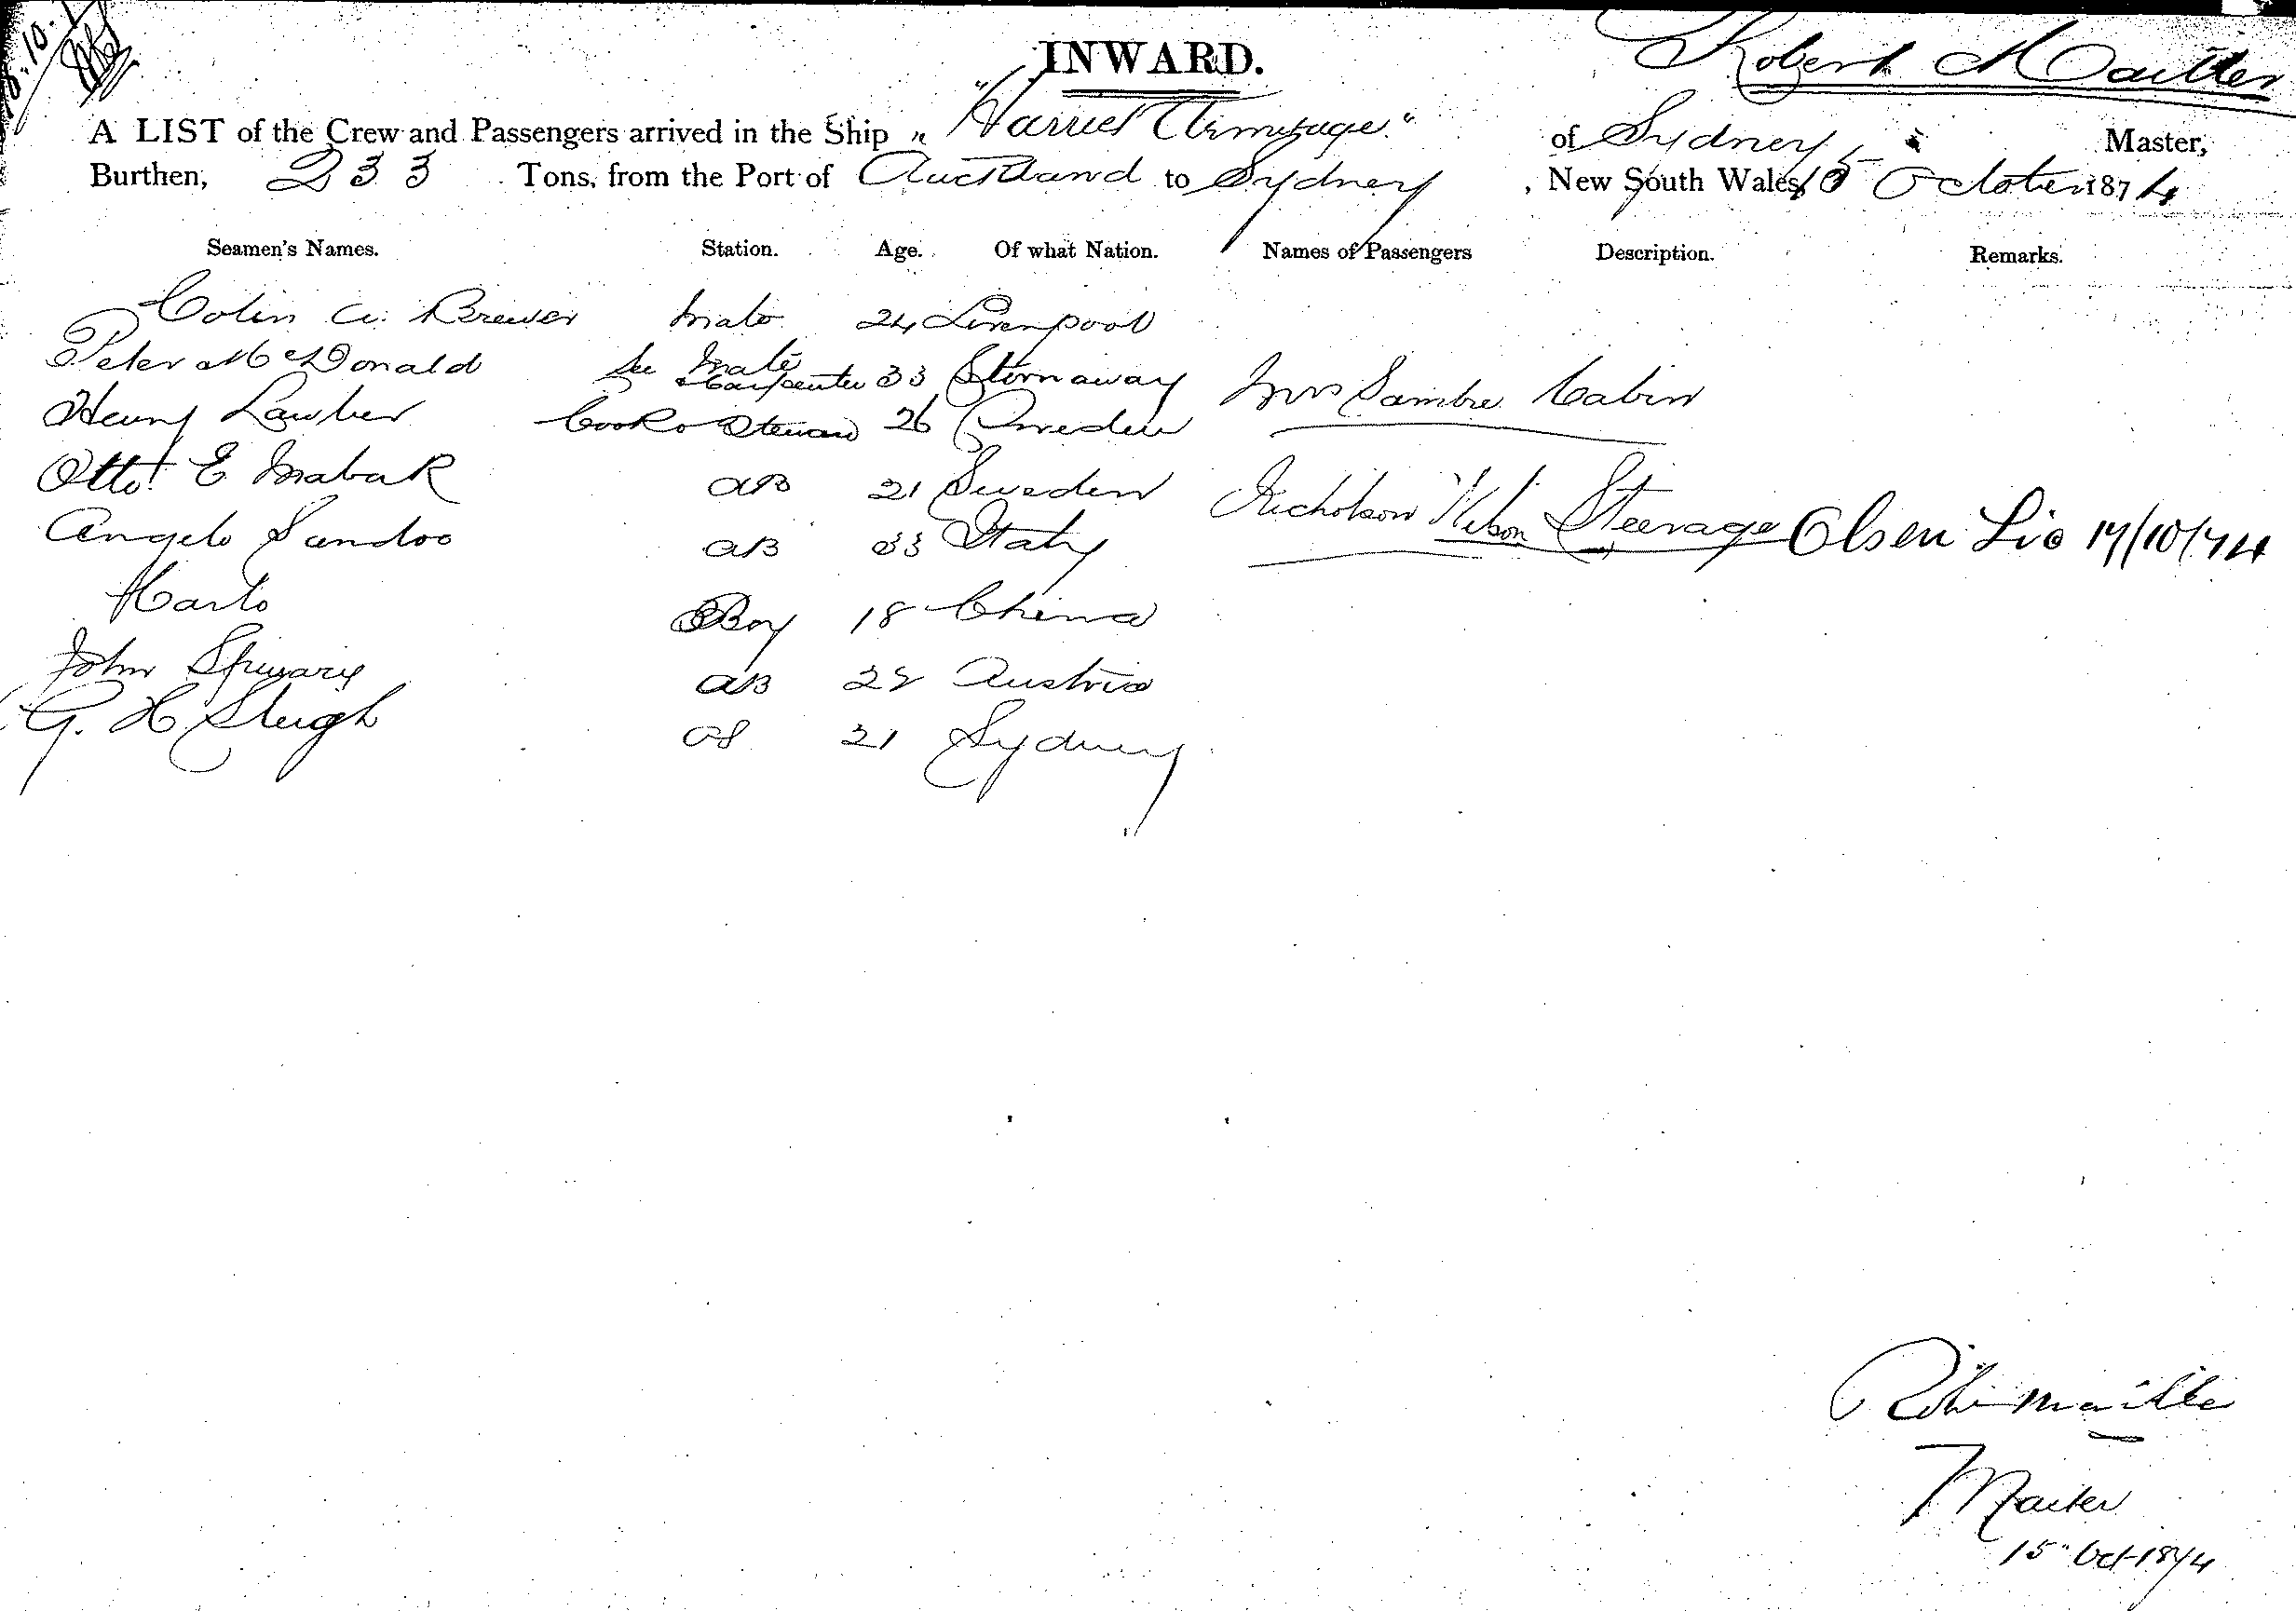 INWARD.
Robert
A LIST of the Crew and Passengers arrived in the Ship "Harriet Armitage" of Sydney Master,
Burthen, 233 Tons, from the Port of Auckland to Sydney, New South Wales, 15 October 1874
Seamen's Names. Station. Age. Of what Nation. Names of Passengers Description. Remarks.
Colin A. Brewer Mate 24 Liverpool
Peter McDonald Sec Mate & Carpenter 33 Stornaway Mrs Cabin
Henry Cook & Steward 26 Sweden
Otto E AB 21 Sweden Nicholson Steerage Olsen 17/10/74
Angelo AB 33 Italy
Boy 18 China
John AB 28 Austria
G. H. Sleigh OS 21 Sydney
Master
15" Oct 1874